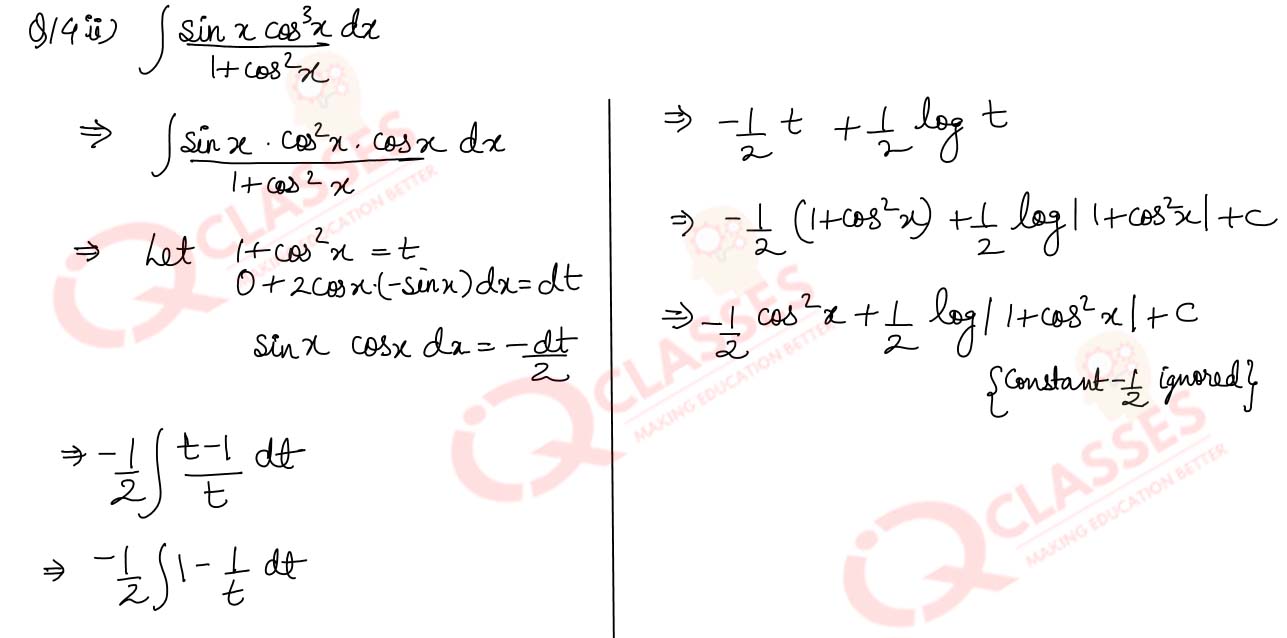 Q14 ii) ∫ sin x cos³x dx / 1+cos²x
⇒ ∫ sin x · cos²x · cos x dx / 1+cos²x
⇒ Let 1+cos²x = t
0+2cosx·(-sinx)dx=dt
sinx cosx dx = -dt/2
⇒ -1/2 ∫ t-1/t dt
⇒ -1/2 ∫ 1 - 1/t dt
⇒ -1/2 t + 1/2 log t
⇒ -1/2 (1+cos²x) + 1/2 log|1+cos²x|+c
⇒ -1/2 cos²x + 1/2 log|1+cos²x|+c
{Constant -1/2 ignored}
IQ CLASSES
MAKING EDUCATION BETTER
IQ CLASSES
MAKING EDUCATION BETTER
IQ CLASSES
MAKING EDUCATION BETTER